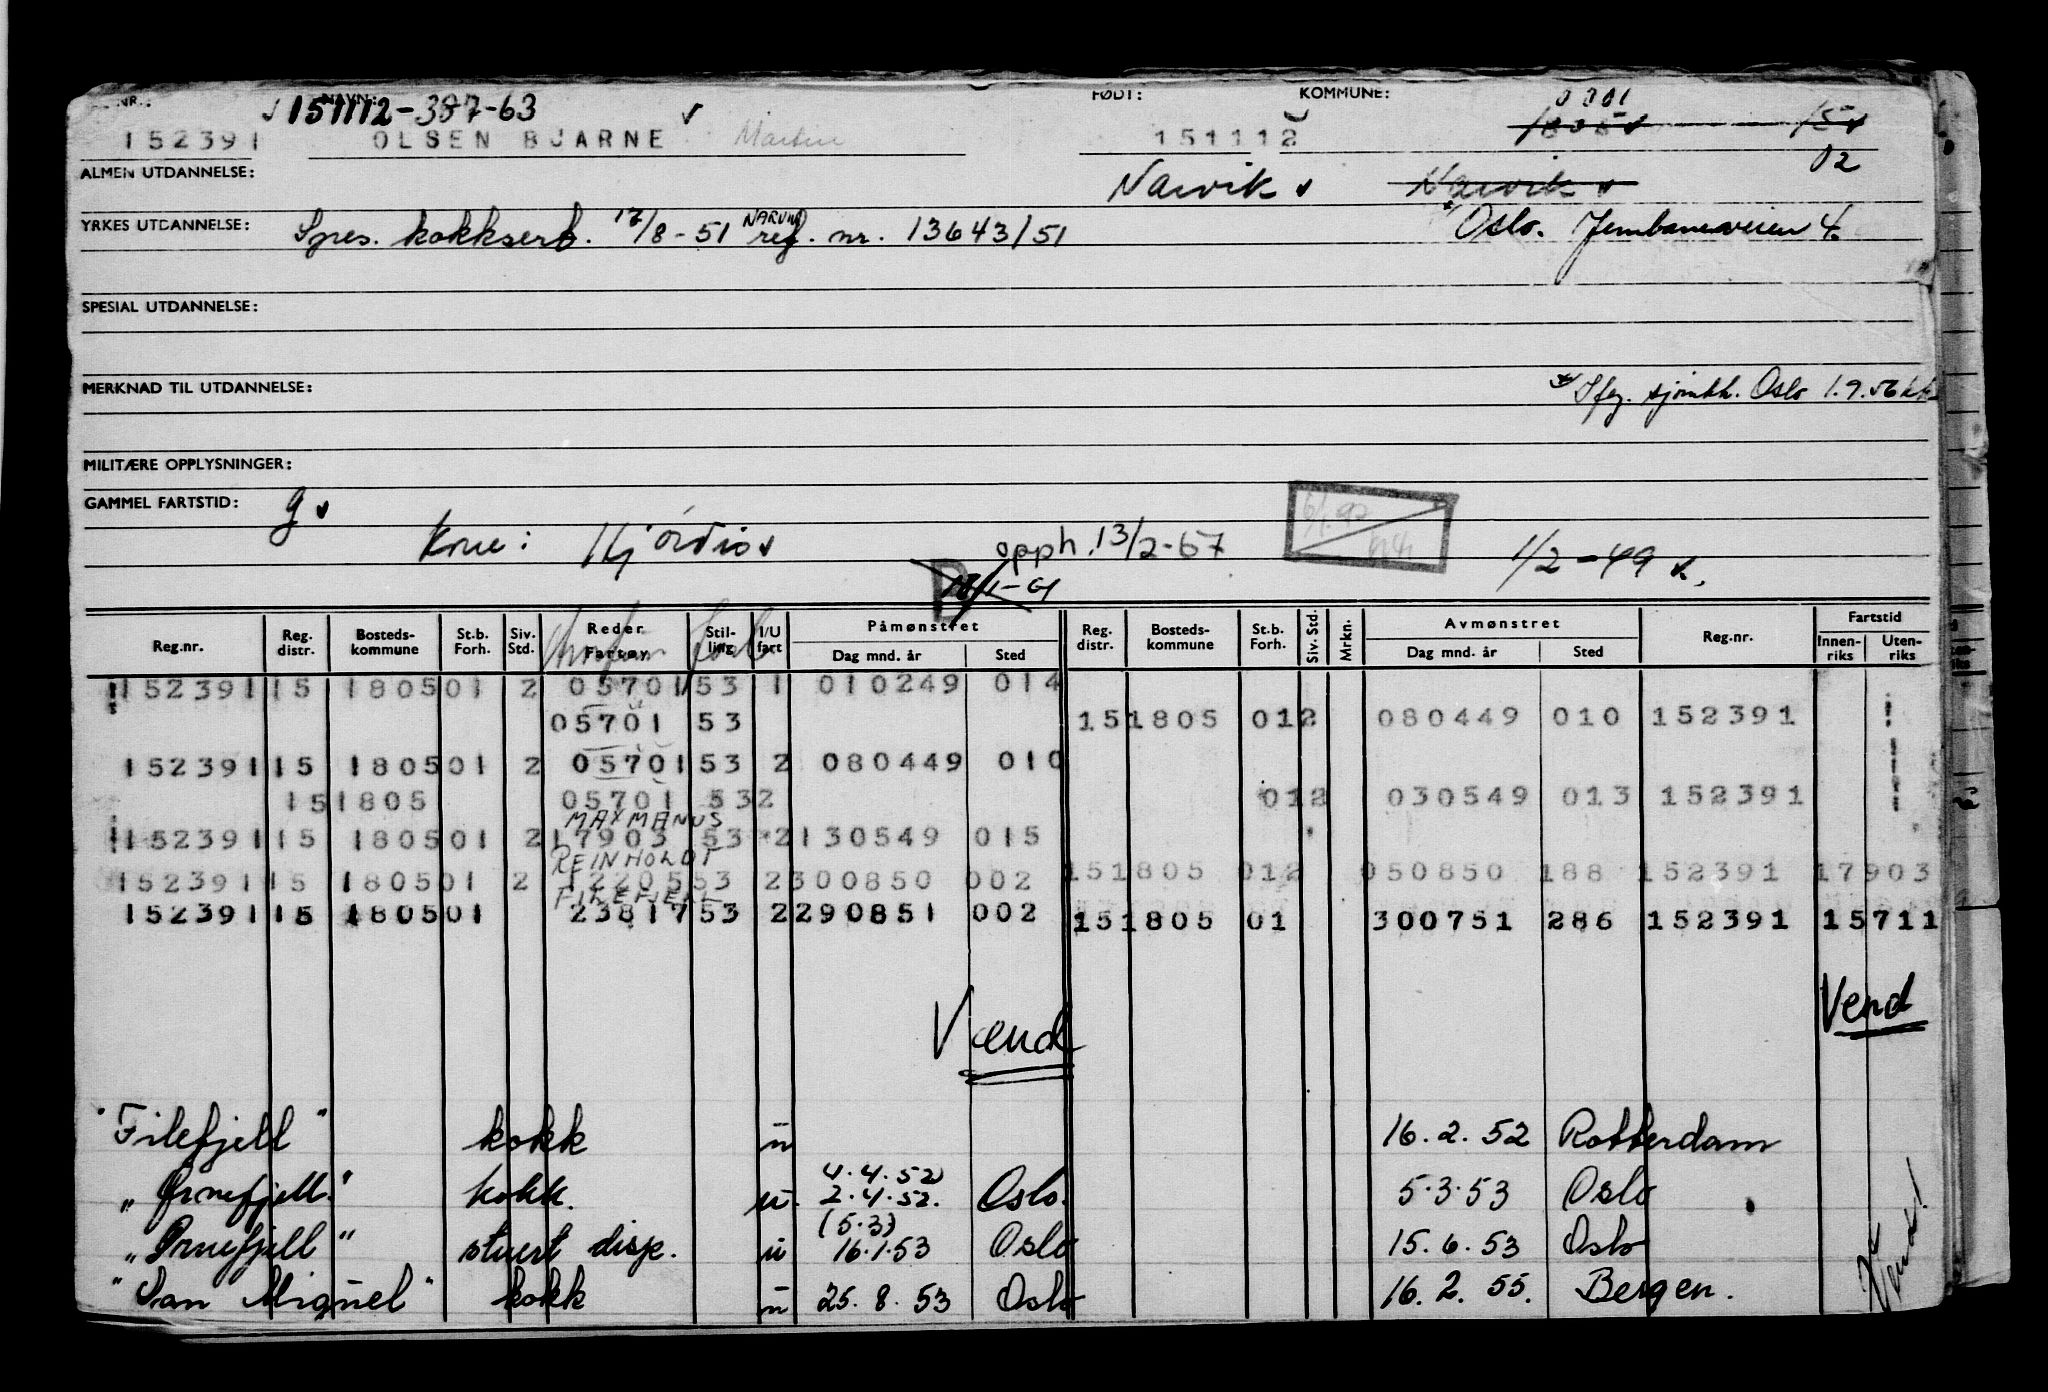 NR.: NAVN: 151112-387-63 FØDT: KOMMUNE: 0001
152391 OLSEN BJARNE Martin 151112 1805 15
02
ALMEN UTDANNELSE: Narvik Narvik
YRKES UTDANNELSE: Spes. kokksert. 17/8-51 NARVIK reg. nr. 13643/51 Oslo. Jernbaneveien 4.
SPESIAL UTDANNELSE:
MERKNAD TIL UTDANNELSE: Iføg. sjømkk. Oslo 1.9.56
MILITÆRE OPPLYSNINGER:
GAMMEL FARTSTID: g
Kone: Hjørdis opph. 13/2-67 1/2-49
Reg.nr. Reg. distr. Bosteds-kommune St.b. Forh. Siv. Std. Reder Fartøy Stil-ling I/U fart Påmønstret Dag mnd. år Sted Reg. distr. Bosteds-kommune St.b. Forh. Siv. Std. Mrkn. Avmønstret Dag mnd. år Sted Reg.nr. Fartstid Innen-riks Uten-riks
152391 15 1805 01 2 05701 53 1 010249 014
05701 53 15 1805 01 2 080449 010 152391
152391 15 1805 01 2 05701 53 2 080449 010
15 1805 05701 53 2 01 2 030549 013 152391
MAX MANUS
152391 15 1805 01 2 17903 53 2 130549 015
REINHOLDT
152391 15 1805 01 2 12205 53 2 300850 002 15 1805 01 2 050850 188 152391 17903
FILEFJELL
152391 15 1805 01 23817 53 2 290851 002 15 1805 01 300751 286 152391 15711
Vend Vend
"Filefjell" kokk u 16.2.52 Rotterdam
4.4.52
"Ørnefjell" kokk. u. 2.4.52. Oslo. 5.3.53 Oslo
(5.3)
"Ørnefjell" stuert disp. u 16.1.53 Oslo 15.6.53 Oslo
"San Miguel" kokk u 25.8.53 Oslo 16.2.55. Bergen.
Vend!